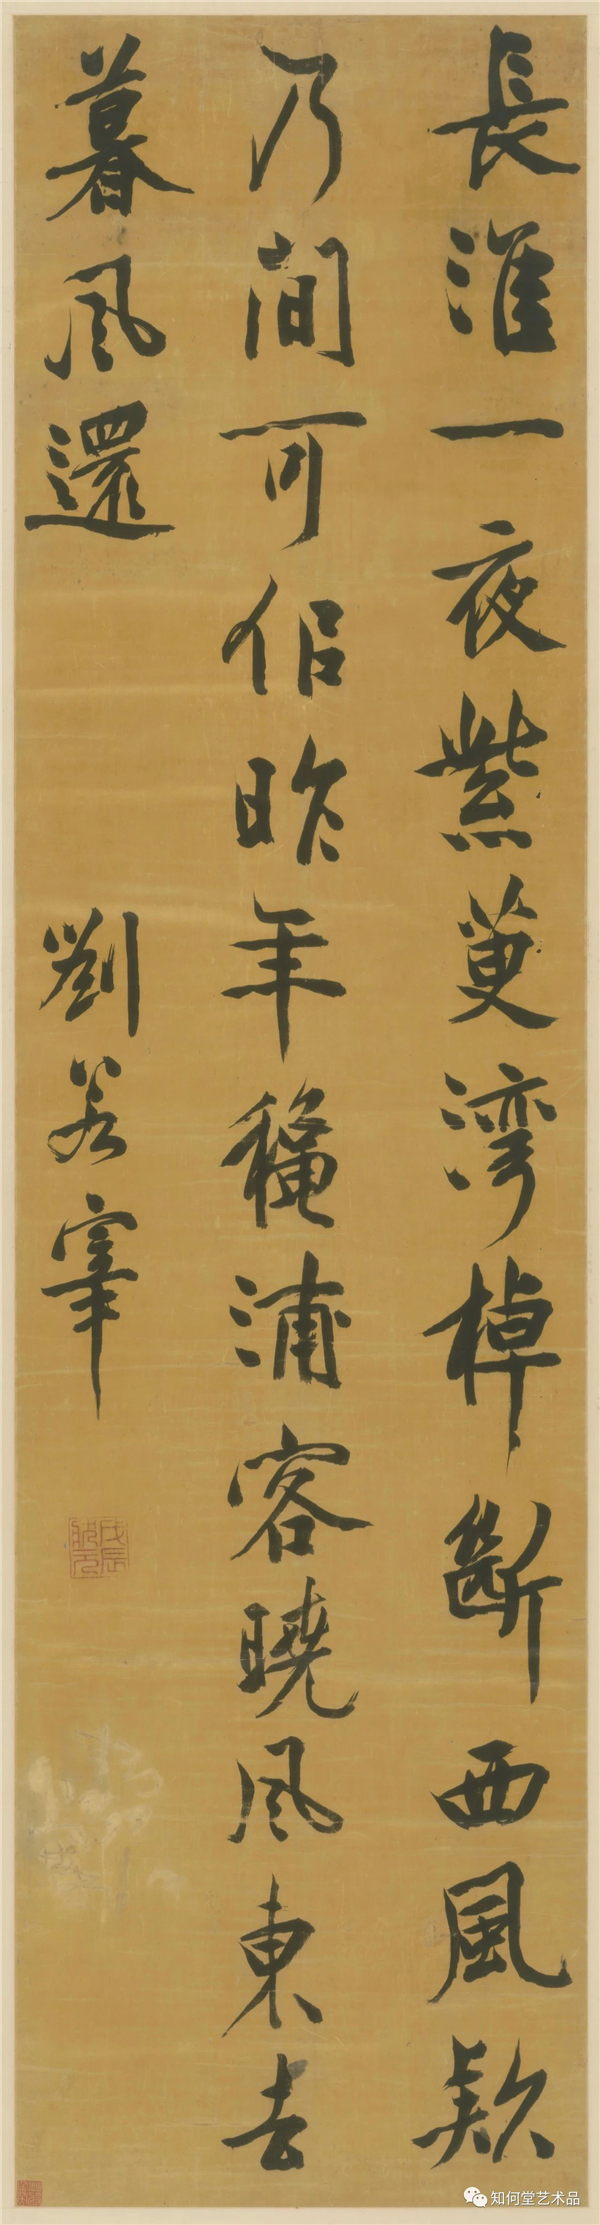 長淮一夜紫萸湾棹斷西風欸
乃間可佀昨年穐浦客曉風東去
暮風還
劉若宰
戊辰狀元
知何堂艺术品